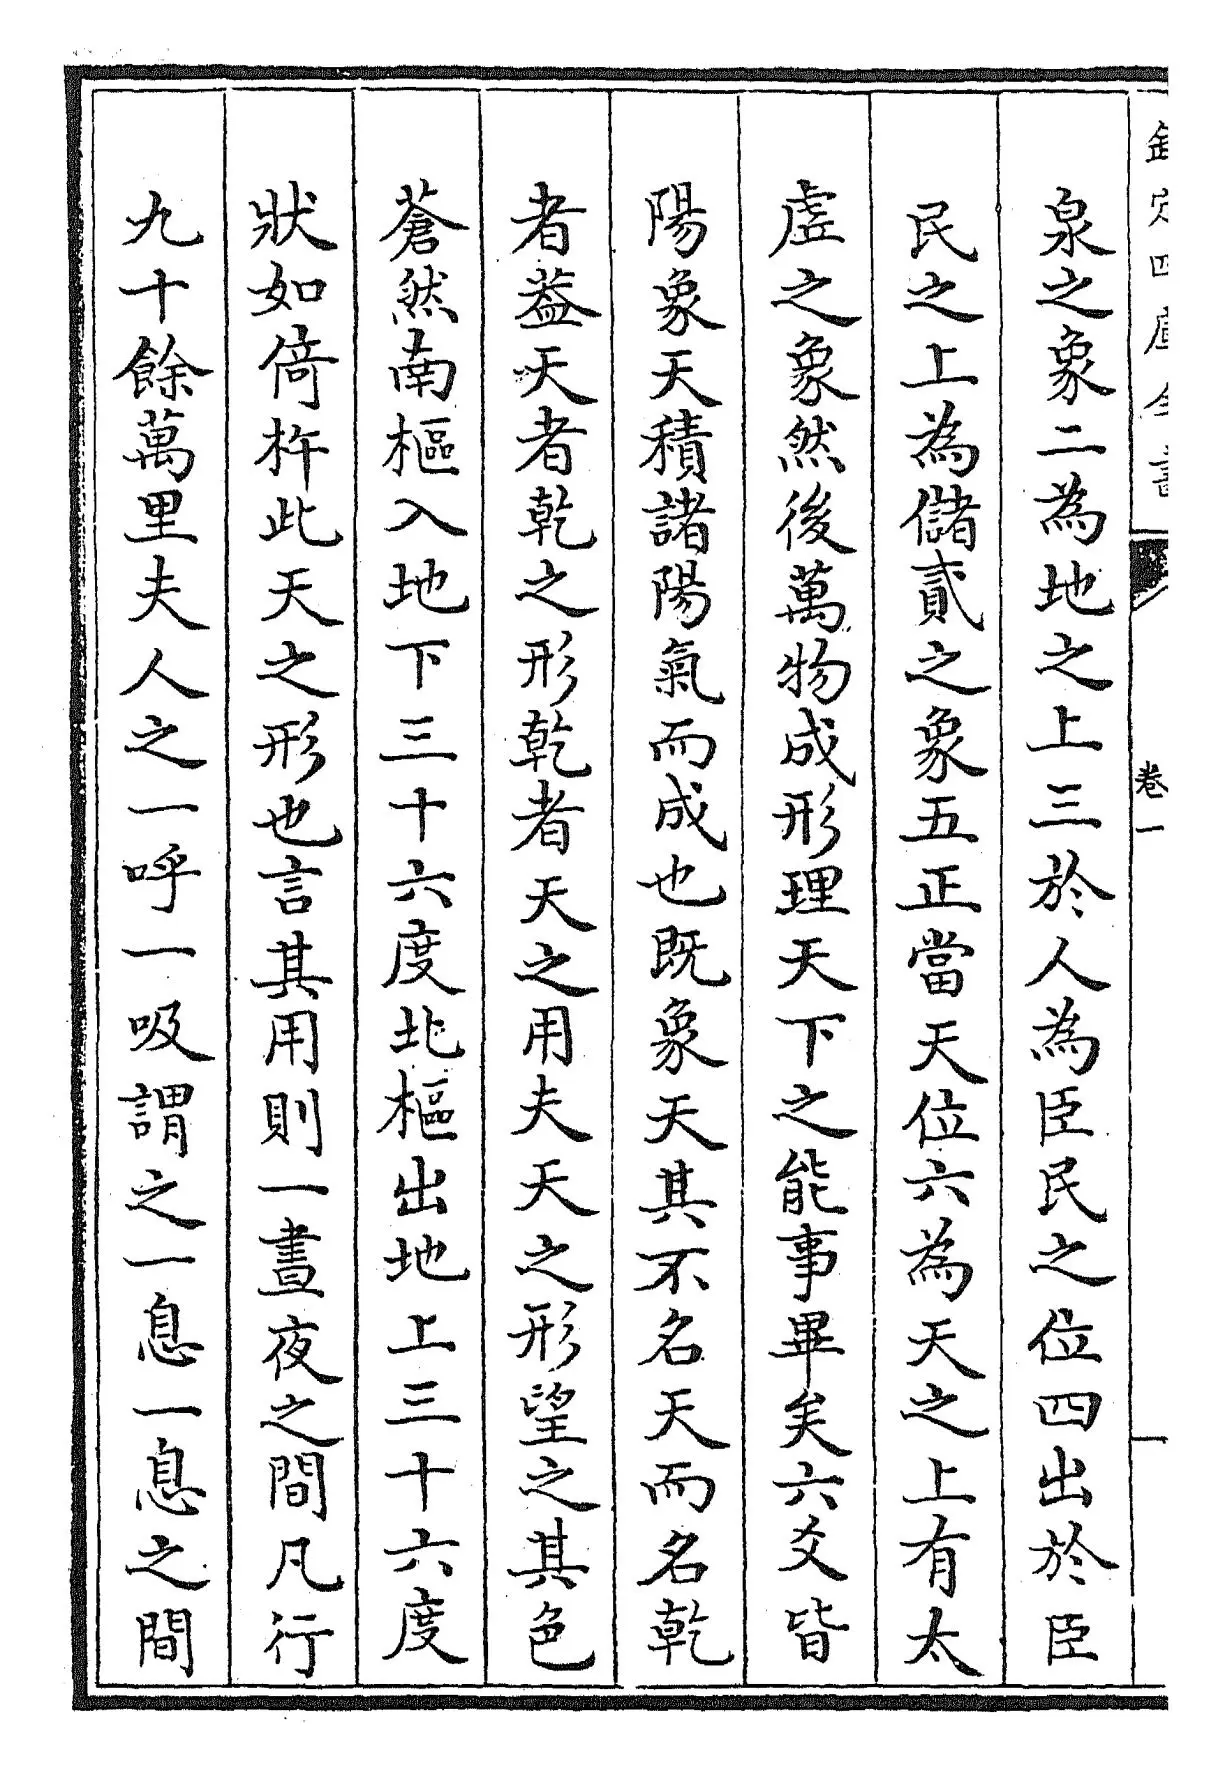 欽定四庫全書
卷一
泉之象二為地之上三於人為臣民之位四出於臣
民之上為儲貳之象五正當天位六為天之上有太
虛之象然後萬物成形理天下之能事畢矣六爻皆
陽象天積諸陽氣而成也既象天其不名天而名乾
者葢天者乾之形乾者天之用夫天之形望之其色
蒼然南樞入地下三十六度北樞出地上三十六度
狀如倚杵此天之形也言其用則一晝夜之間凡行
九十餘萬里夫人之一呼一吸謂之一息一息之間